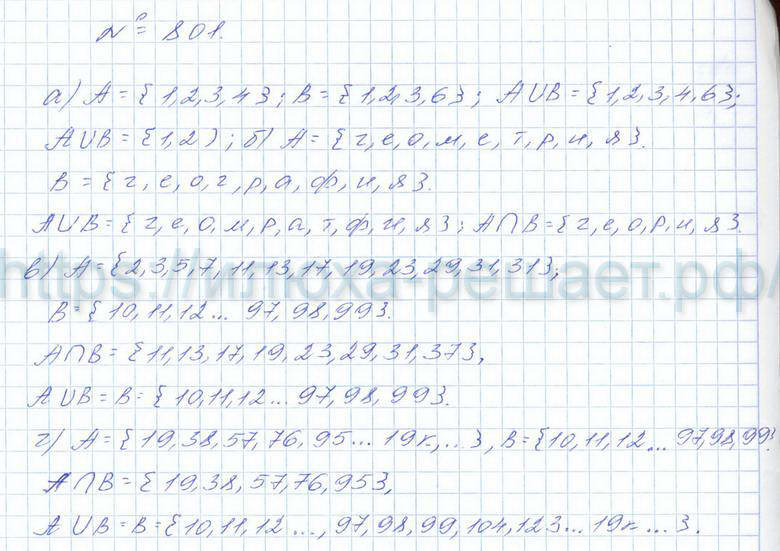 № 801.
а) A = {1,2,3,4}; B = {1,2,3,6}; A∪B = {1,2,3,4,6};
A∪B = {1,2}; б) A = {г, е, о, м, е, т, р, и, я}.
B = {г, е, о, г, р, а, ф, и, я}.
A∪B = {г, е, о, м, р, а, т, ф, и, я}; A∩B = {г, е, о, р, и, я}.
https://илюха-решает.рф/
в) A = {2,3,5,7,11,13,17,19,23,29,31,31};
B = {10,11,12... 97,98,99}.
A∩B = {11,13,17,19,23,29,31,37},
A∪B = B = {10,11,12... 97,98,99}.
г) A = {19,38,57,76,95... 19к,...}, B = {10,11,12... 97,98,99}.
A∩B = {19,38,57,76,95},
A∪B = B = {10,11,12..., 97,98,99,104,123... 19к...}.